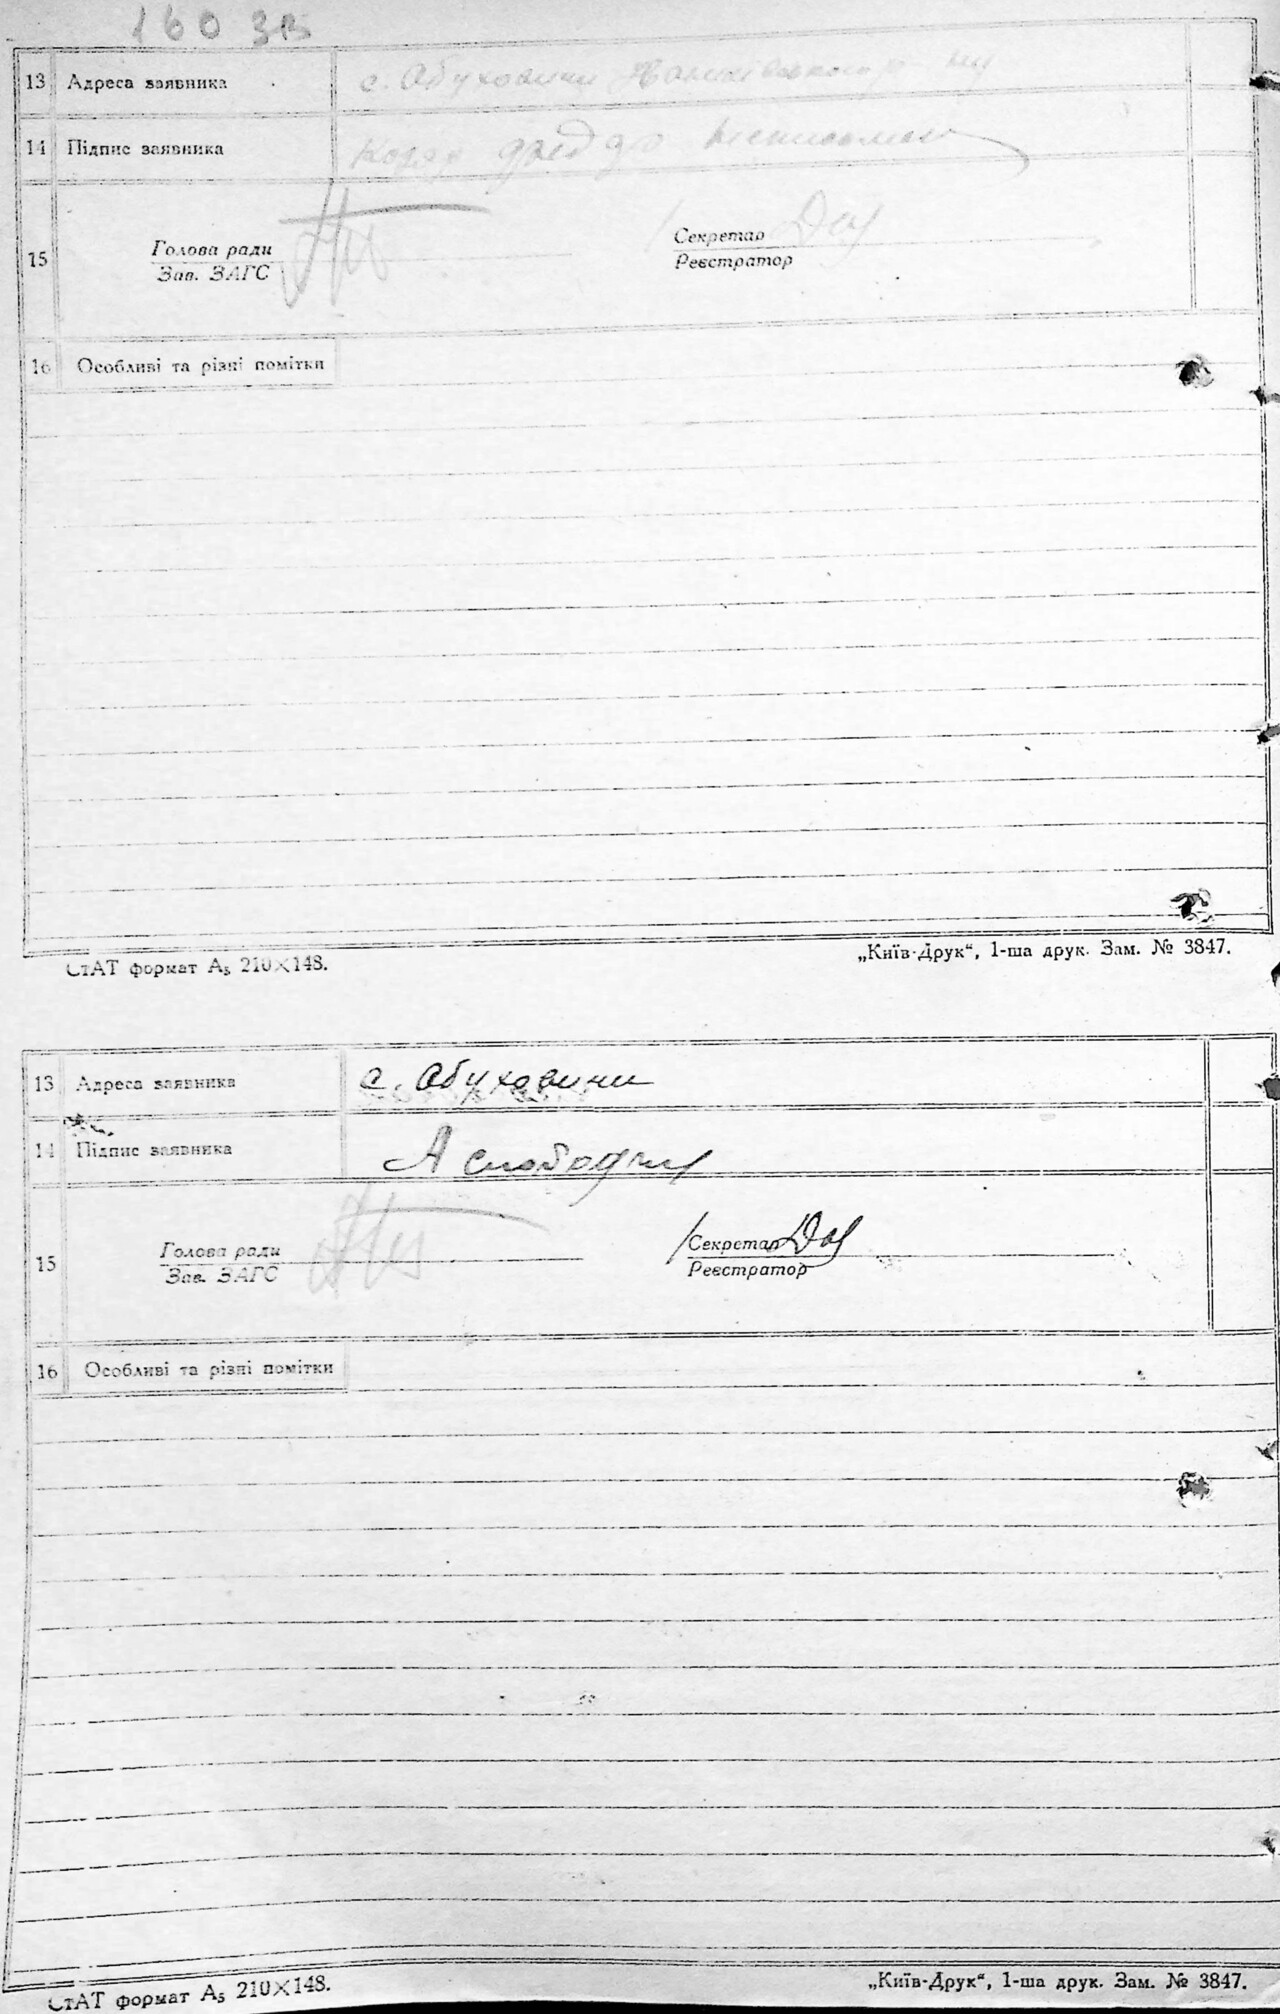 160 зв
13 Адреса заявника с. Обуховичи
14 Підпис заявника
15 Голова ради Секретар
Зав. ЗАГС Реєстратор
16 Особливі та різні помітки
СтАТ формат А₅ 210×148. „Київ-Друк“, 1-ша друк. Зам. № 3847.
13 Адреса заявника с. Обуховичи
14 Підпис заявника А Слободян
15 Голова ради Секретар
Зав. ЗАГС Реєстратор
16 Особливі та різні помітки
СтАТ формат А₅ 210×148. „Київ-Друк“, 1-ша друк. Зам. № 3847.